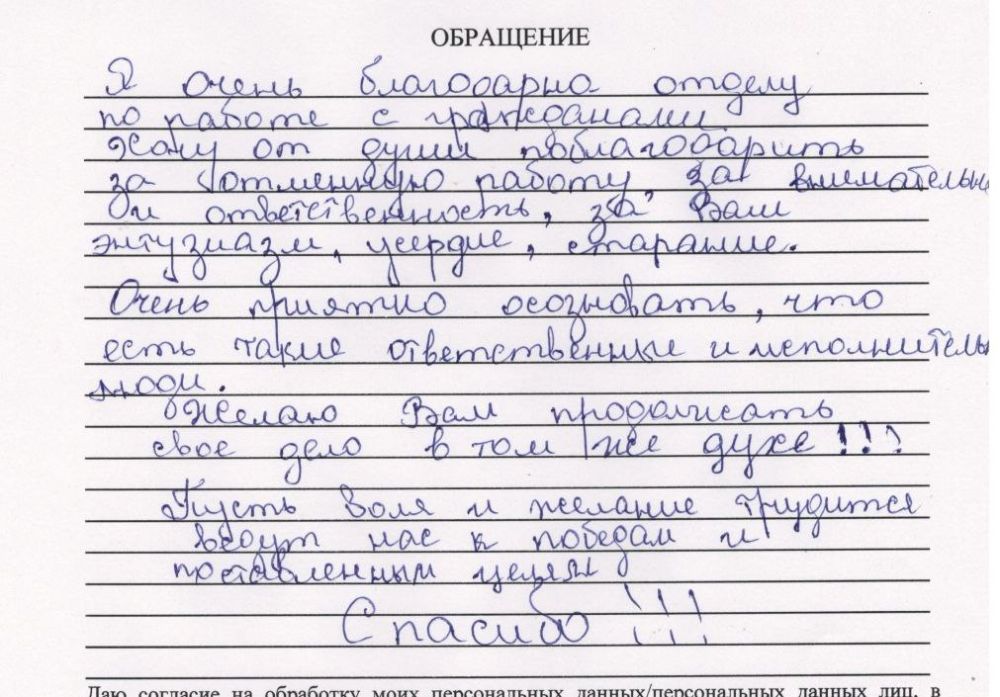 ОБРАЩЕНИЕ
Я очень благодарна отделу
по работе с гражданами
Хочу от души поблагодарить
за отменную работу, за внимательн
и ответственность, за Ваш
энтузиазм, усердие, старание.
Очень приятно осозновать, что
есть такие ответственные и исполнитель
люди.
Желаю Вам продолжать
свое дело в том же духе!!!
Пусть воля и желание трудится
ведут нас к победам и
поставленным целям
Спасибо!!!
Даю согласие на обработку моих персональных данных/персональных данных лиц, в